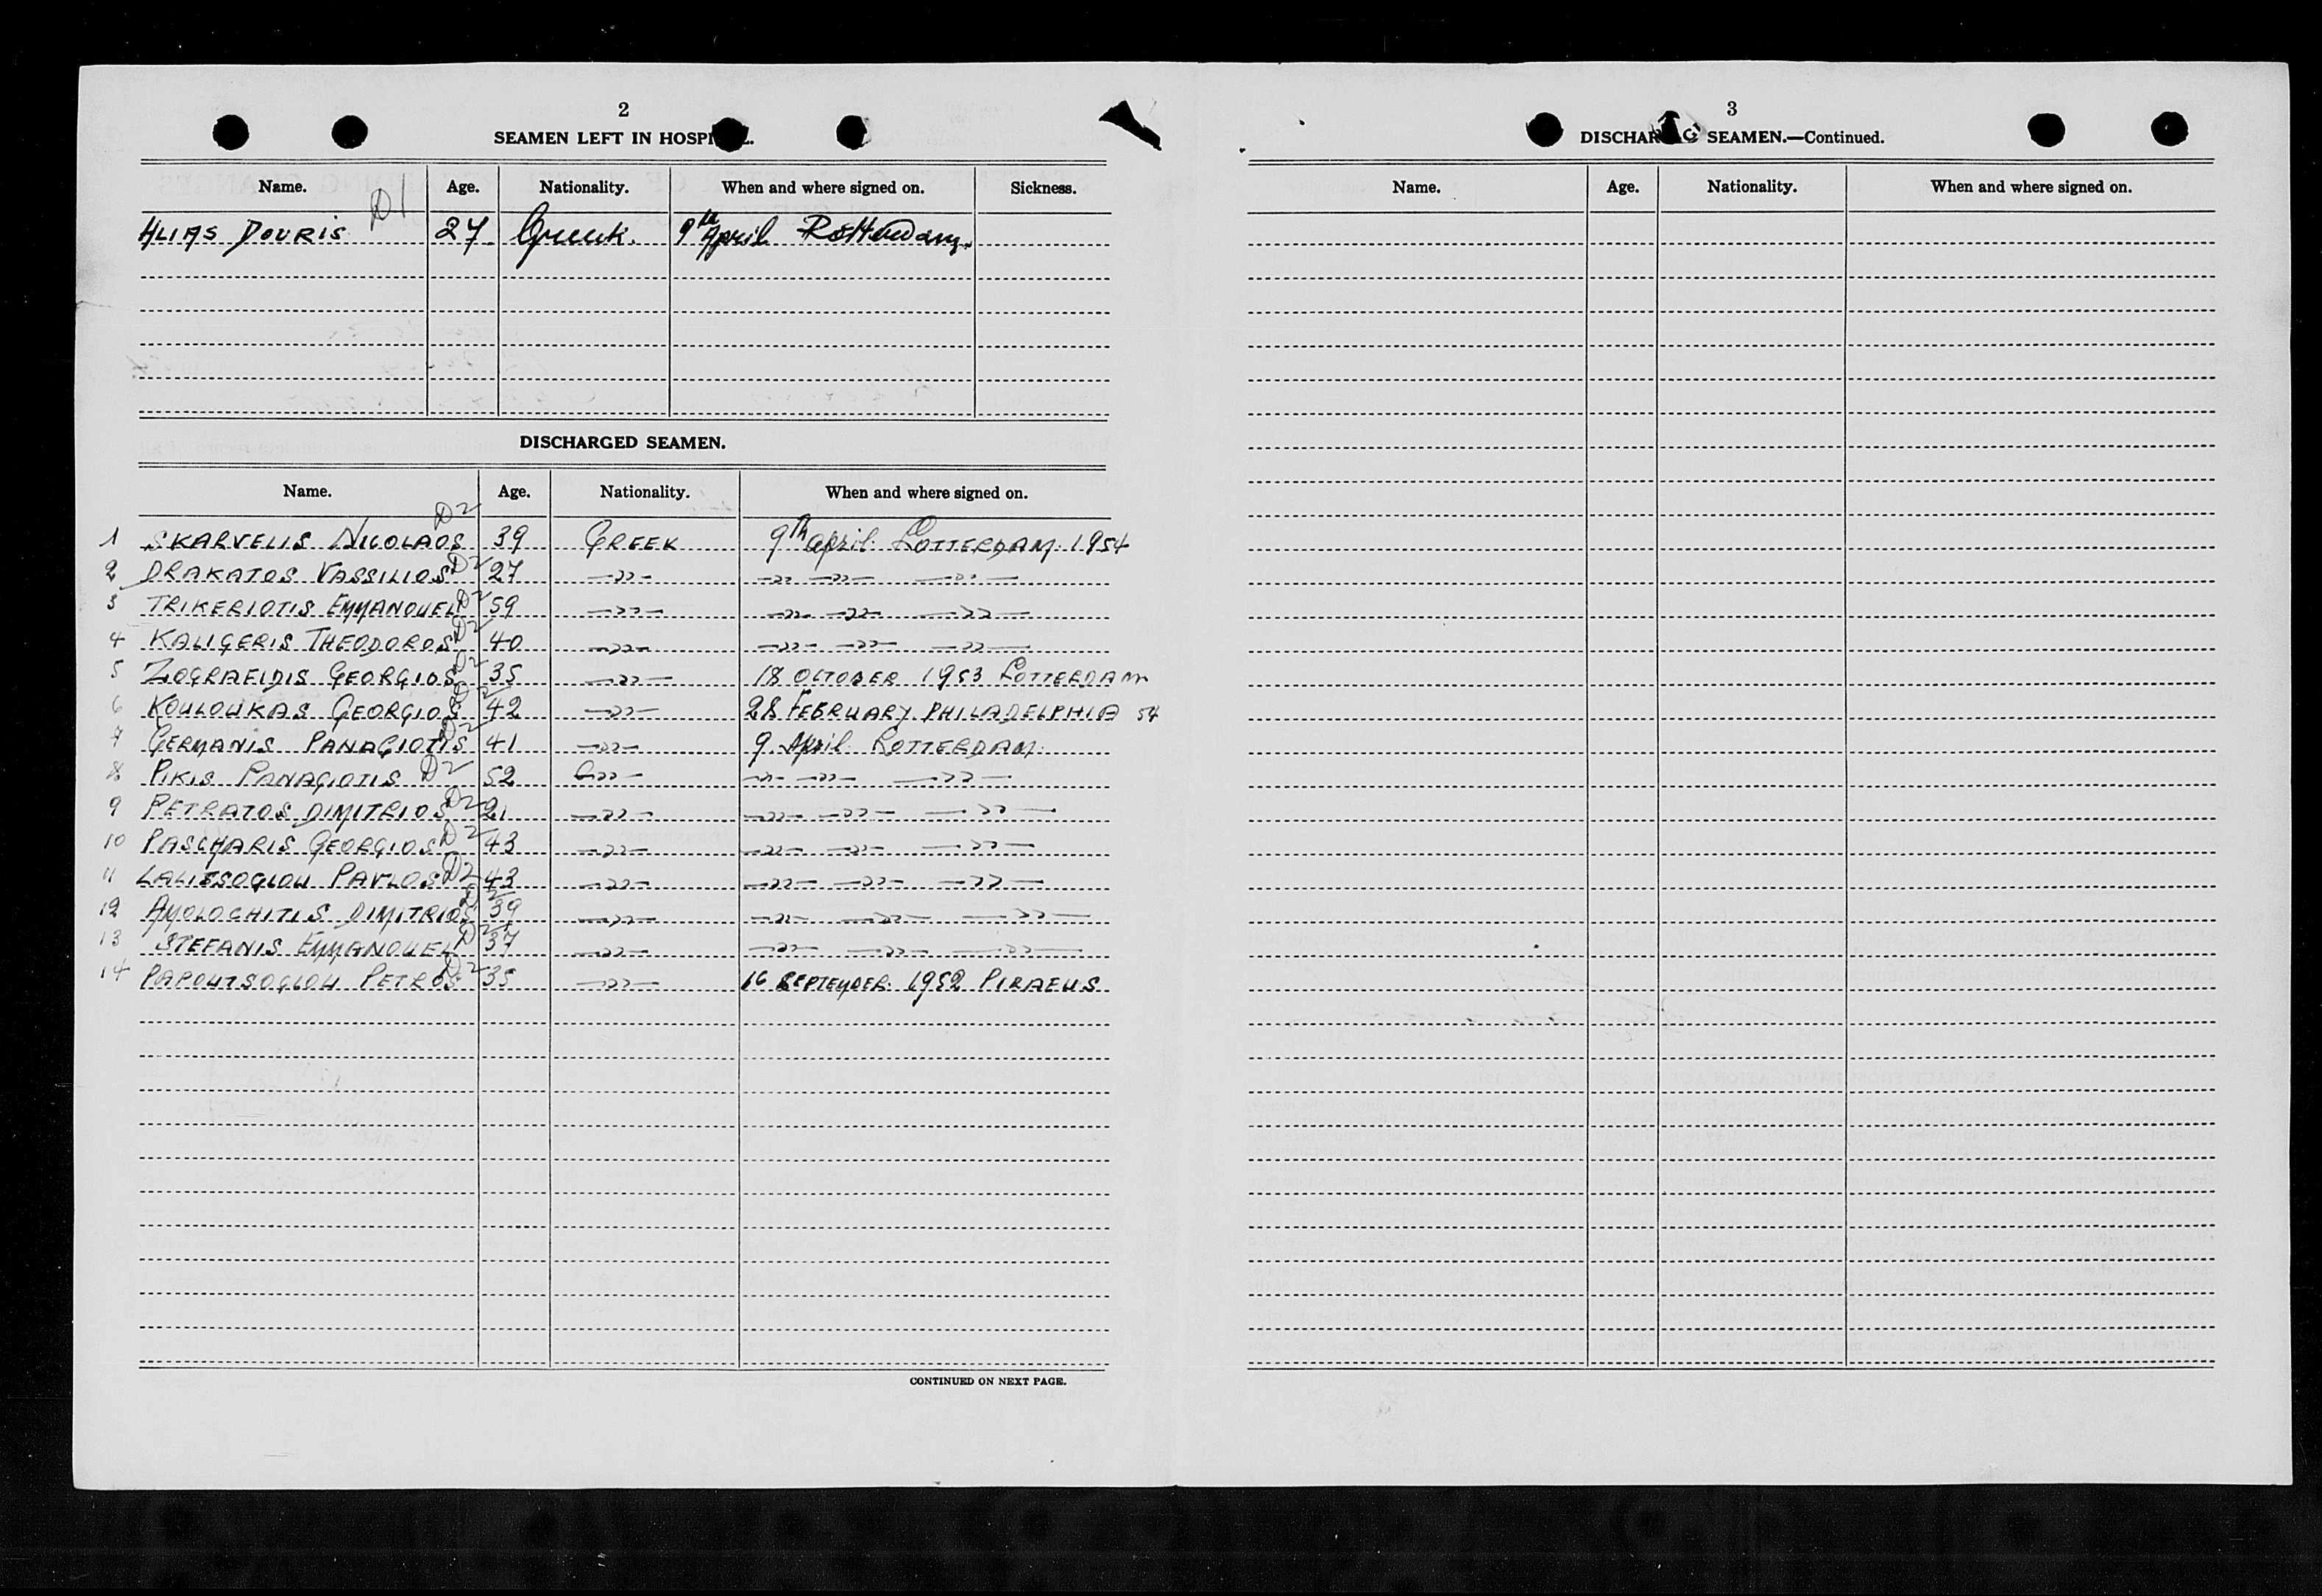 2
SEAMEN LEFT IN HOSPI L.
Name. Age. Nationality. When and where signed on. Sickness.
D1
HLIAS DOURIS 27 Greek. 9th April Rotterdam.
DISCHARGED SEAMEN.
Name. Age. Nationality. When and where signed on.
1 SKARVELIS NICOLAOS D2 39 GREEK 9th april. ROTTERDAM. 1954
2 DRAKATOS VASSILIOS D2 27 -»- -»- -»- -»-
3 TRIKERIOTIS EMMANOUEL D2 59 -»- -»- -»- -»-
4 KALIGERIS THEODOROS D2 40 -»- -»- -»- -»-
5 ZOGRAFIDIS GEORGIOS D2 35 -»- 18 OCTOBER 1953 ROTTERDAM
6 KOULOUKAS GEORGIOS D2 42 -»- 28 FEBRUARY. PHILADELPHIA 54
7 GERMANIS PANAGIOTIS D2 41 -»- 9. April. ROTTERDAM.
8 PIKIS PANAGIOTIS D2 52 -»- -»- -»- -»-
9 PETRATOS DIMITRIOS D2 21 -»- -»- -»- -»-
10 PASCHARIS GEORGIOS D2 43 -»- -»- -»- -»-
11 PAVLOS D2 43 -»- -»- -»- -»-
12 AMOLOCHITIS DIMITRIOS D2 39 -»- -»- -»- -»-
13 STEFANIS EMMANOUEL D2 37 -»- -»- -»- -»-
14 PAPOUTSOGLOU PETROS D2 35 -»- 16 SEPTEMBER. 1952 PIRAEUS
CONTINUED ON NEXT PAGE.
3
DISCHAR G SEAMEN.—Continued.
Name. Age. Nationality. When and where signed on.